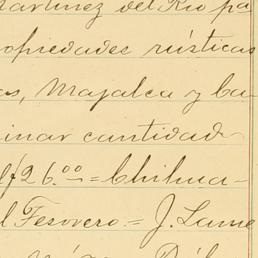 artinez del Rio pa
opiedades rústicas
as, Majalca y ba
inar cantidad
26.00 = Chihua-
l Tesorero = J. Lame